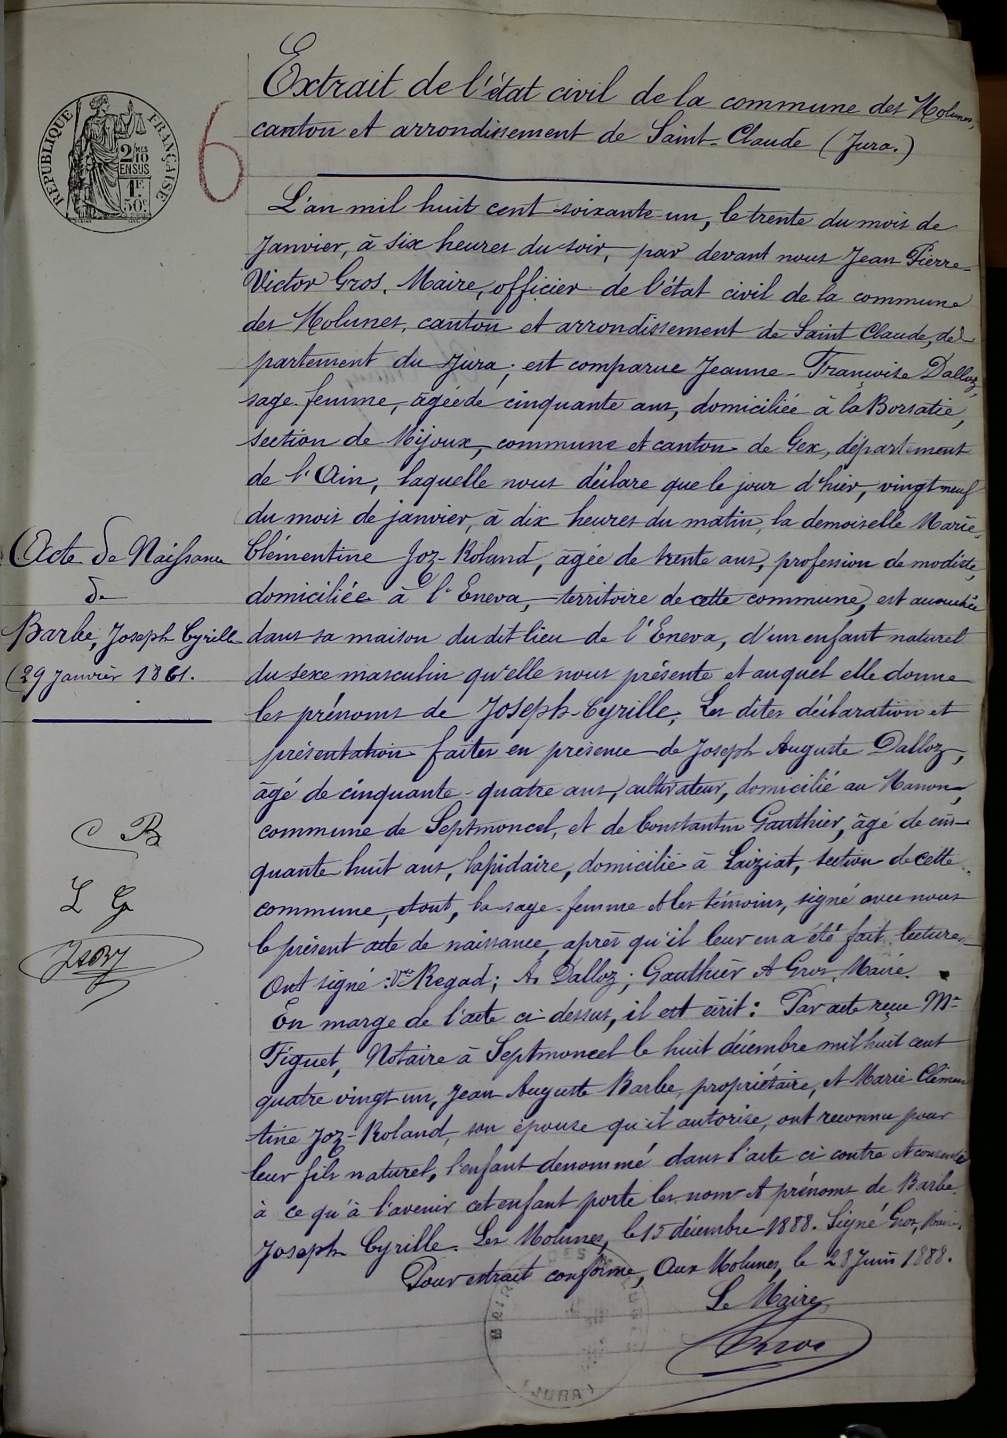 RÉPUBLIQUE FRANÇAISE
2/10 EN SUS
1F. 50c
6
Extrait de l'état civil de la commune des Molunes,
canton et arrondissement de Saint-Claude (Jura.)
L'an mil huit cent soixante-un, le trente du mois de
Janvier, à six heures du soir, par devant nous Jean Pierre-
Victor Gros, Maire, officier de l'état civil de la commune
des Molunes, canton et arrondissement de Saint Claude, dé-
partement du Jura; est comparue Jeanne-Françoise Dalloz,
sage-femme, âgée de cinquante ans, domiciliée à la Borsatie,
section de Mijoux, commune et canton de Gex, département
de l'Ain, laquelle nous déclare que le jour d'hier, vingt neuf
du mois de janvier, à dix heures du matin, la demoiselle Marie-
Clémentine Joz-Roland, âgée de trente ans, profession de modiste,
domiciliée à l'Eneva, territoire de cette commune, est accouchée
dans sa maison du dit lieu de l'Eneva, d'un enfant naturel
du sexe masculin qu'elle nous présente et auquel elle donne
les prénoms de Joseph-Cyrille. Les dites déclaration et
présentation faites en présence de Joseph Auguste Dalloz,
âgé de cinquante-quatre ans, cultivateur, domicilié au Manon,
commune de Septmoncel, et de Constantin Gauthier, âgé de cin-
quante huit ans, lapidaire, domicilié à Laiziat, section de cette
commune, et ont, la sage-femme et les témoins, signé avec nous
le présent acte de naissance, après qu'il leur en a été fait lecture.
Ont signé: Vve Regad; A. Dalloz; Gauthier et Gros, Maire.
En marge de l'acte ci-dessus, il est écrit: Par acte reçu Me
Figuet, Notaire à Septmoncel le huit décembre mil huit cent
quatre vingt un, Jean Auguste Barbe, propriétaire, et Marie Clémen
tine Joz-Roland, son épouse qu'il autorise, ont reconnu pour
leur fils naturel, l'enfant denommé dans l'acte ci contre et consenti
à ce qu'à l'avenir cet enfant porte les nom et prénoms de Barbe
Joseph Cyrille. Les Molunes, le 15 décembre 1888. Signé Gros, Maire.
Pour extrait conforme, Aux Molunes, le 28 Juin 1888.
Le Maire
Gros
MAIRIE DES MOLUNES
(JURA)
Acte de Naissance
de
Barbe, Joseph Cyrille
(29 Janvier 1861.
C B
L G